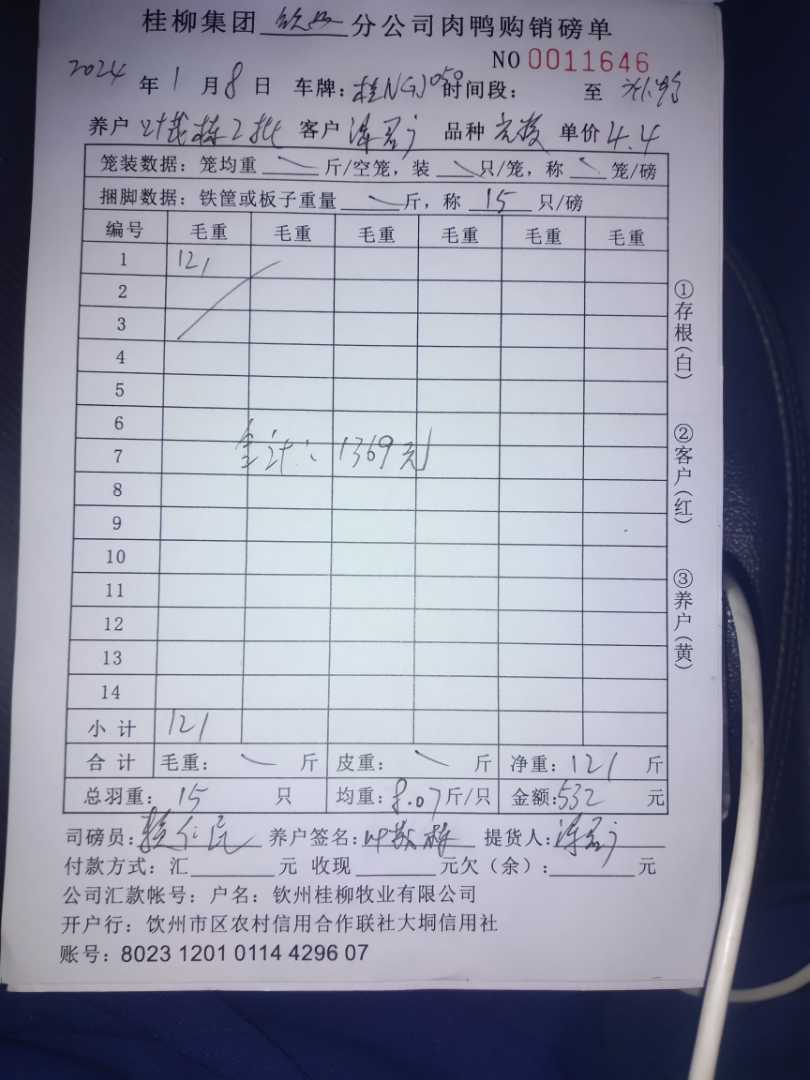 桂柳集团 钦州 分公司肉鸭购销磅单
NO 0011646
2024 年 1 月 8 日 车牌：桂NGJ050 时间段： 至
养户 2批 客户 品种 单价 4.4
笼装数据：笼均重 斤/空笼，装 只/笼，称 笼/磅
捆脚数据：铁筐或板子重量 斤，称 15 只/磅
编号 毛重 毛重 毛重 毛重 毛重 毛重
1 121
2
3
4
5
6
合计：1369元
7
8
9
10
11
12
13
14
小计 121
合计 毛重： 斤 皮重： 斤 净重：121 斤
总羽重：15 只 均重：8.07斤/只 金额：532 元
司磅员： 养户签名： 提货人：
付款方式：汇 元 收现 元欠（余）： 元
公司汇款帐号：户名：钦州桂柳牧业有限公司
开户行：饮州市区农村信用合作联社大垌信用社
账号：8023 1201 0114 4296 07
①存根（白）
②客户（红）
③养户（黄）